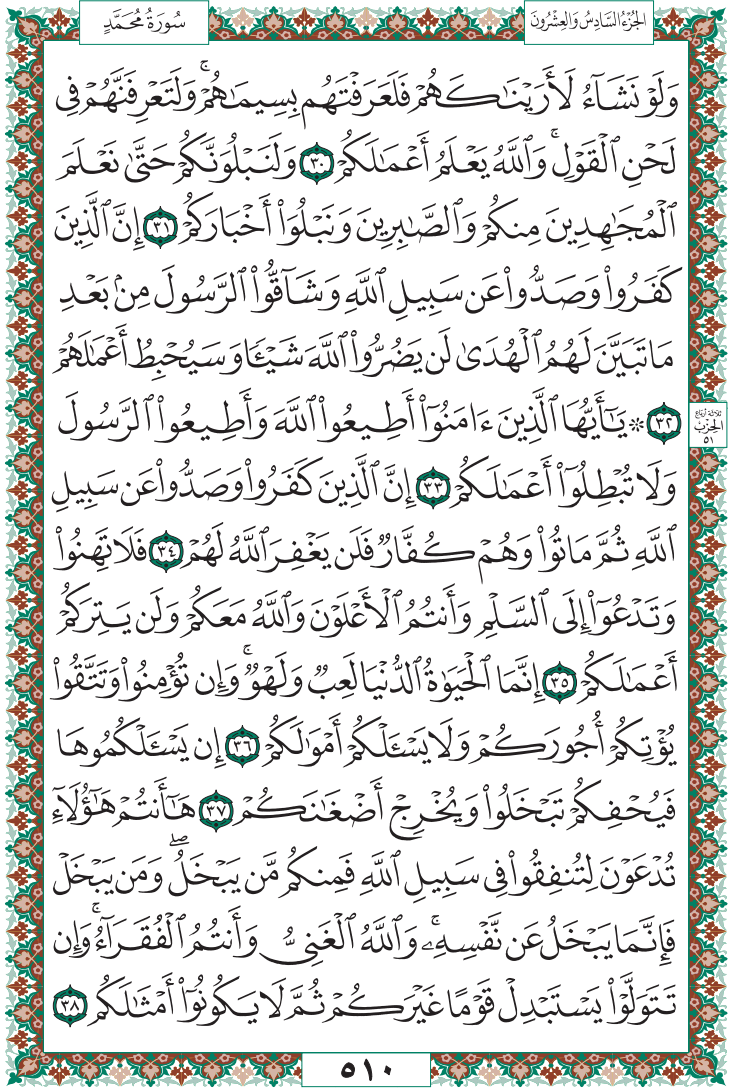 الجُزْءُ السَّادِسُ وَالعِشْرُونَ
سُورَةُ مُحَمَّدٍ
وَلَوْ نَشَآءُ لَأَرَيْنَٰكَهُمْ فَلَعَرَفْتَهُم بِسِيمَٰهُمْۚ وَلَتَعْرِفَنَّهُمْ فِى
لَحْنِ ٱلْقَوْلِۚ وَٱللَّهُ يَعْلَمُ أَعْمَٰلَكُمْ ٣٠ وَلَنَبْلُوَنَّكُمْ حَتَّىٰ نَعْلَمَ
ٱلْمُجَٰهِدِينَ مِنكُمْ وَٱلصَّٰبِرِينَ وَنَبْلُوَا۟ أَخْبَارَكُمْ ٣١ إِنَّ ٱلَّذِينَ
كَفَرُوا۟ وَصَدُّوا۟ عَن سَبِيلِ ٱللَّهِ وَشَآقُّوا۟ ٱلرَّسُولَ مِنۢ بَعْدِ
مَا تَبَيَّنَ لَهُمُ ٱلْهُدَىٰ لَن يَضُرُّوا۟ ٱللَّهَ شَيْـًٔا وَسَيُحْبِطُ أَعْمَٰلَهُمْ
٣٢ ۞ يَٰٓأَيُّهَا ٱلَّذِينَ ءَامَنُوٓا۟ أَطِيعُوا۟ ٱللَّهَ وَأَطِيعُوا۟ ٱلرَّسُولَ
ثَلَاثَةُ أَرْبَاعِ
الحِزْبِ
٥١
وَلَا تُبْطِلُوٓا۟ أَعْمَٰلَكُمْ ٣٣ إِنَّ ٱلَّذِينَ كَفَرُوا۟ وَصَدُّوا۟ عَن سَبِيلِ
ٱللَّهِ ثُمَّ مَاتُوا۟ وَهُمْ كُفَّارٌ فَلَن يَغْفِرَ ٱللَّهُ لَهُمْ ٣٤ فَلَا تَهِنُوا۟
وَتَدْعُوٓا۟ إِلَى ٱلسَّلْمِ وَأَنتُمُ ٱلْأَعْلَوْنَ وَٱللَّهُ مَعَكُمْ وَلَن يَتِرَكُمْ
أَعْمَٰلَكُمْ ٣٥ إِنَّمَا ٱلْحَيَوٰةُ ٱلدُّنْيَا لَعِبٌ وَلَهْوٌۚ وَإِن تُؤْمِنُوا۟ وَتَتَّقُوا۟
يُؤْتِكُمْ أُجُورَكُمْ وَلَا يَسْـَٔلْكُمْ أَمْوَٰلَكُمْ ٣٦ إِن يَسْـَٔلْكُمُوهَا
فَيُحْفِكُمْ تَبْخَلُوا۟ وَيُخْرِجْ أَضْغَٰنَكُمْ ٣٧ هَٰٓأَنتُمْ هَٰٓؤُلَآءِ
تُدْعَوْنَ لِتُنفِقُوا۟ فِى سَبِيلِ ٱللَّهِ فَمِنكُم مَّن يَبْخَلُۖ وَمَن يَبْخَلْ
فَإِنَّمَا يَبْخَلُ عَن نَّفْسِهِۦۚ وَٱللَّهُ ٱلْغَنِىُّ وَأَنتُمُ ٱلْفُقَرَآءُۚ وَإِن
تَتَوَلَّوْا۟ يَسْتَبْدِلْ قَوْمًا غَيْرَكُمْ ثُمَّ لَا يَكُونُوٓا۟ أَمْثَٰلَكُم ٣٨
٥١٠